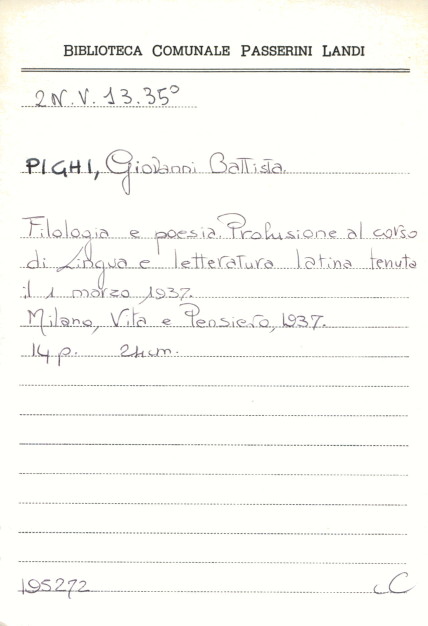 BIBLIOTECA COMUNALE PASSERINI LANDI
2N.V.13.35°
PIGHI, Giovanni Battista.
Filologia e poesia. Prolusione al corso
di Lingua e letteratura latina tenuta
il 1 marzo 1937.
Milano, Vita e Pensiero, 1937.
14 p. 24 cm.
195272 C